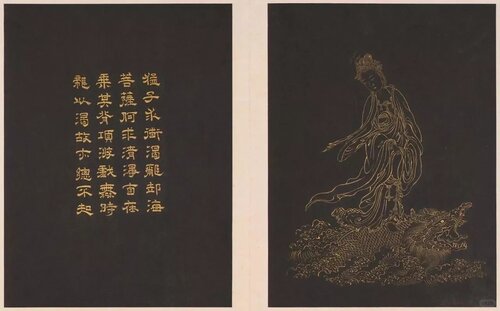 子求渴龍却海
菩薩何求清淨自在
乘其背項游戲無時
龍以渴故亦總不